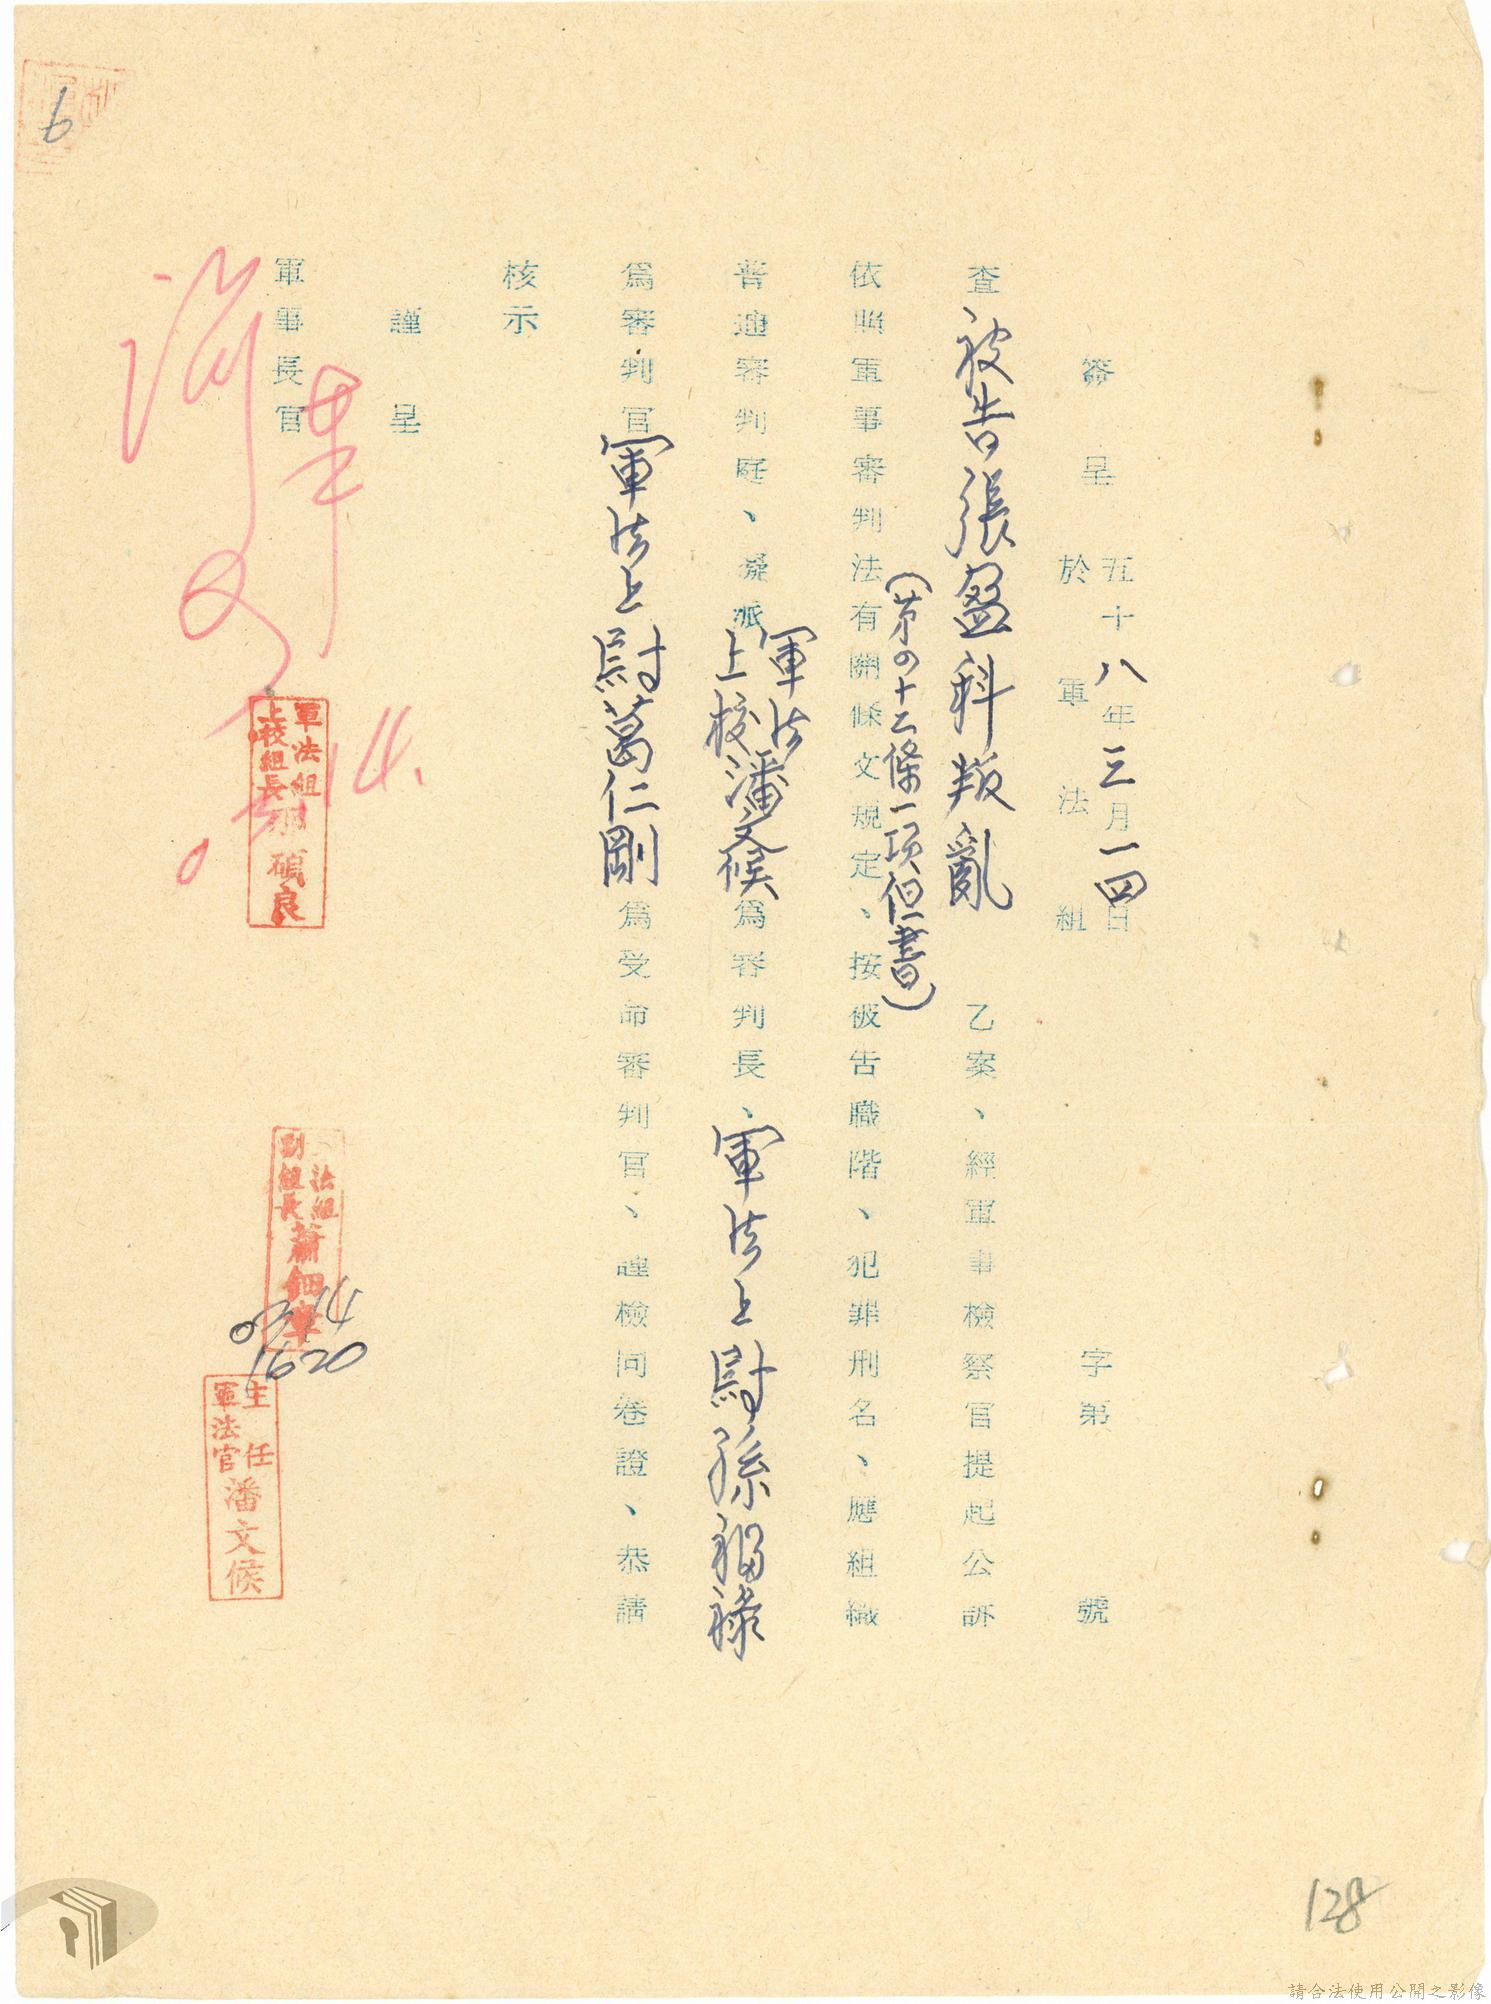 簽呈 五十八年三月一四日 於軍法組 字第 號
查被告張盈科叛亂乙案、經軍事檢察官提起公訴
(第四十二條一項但書)
依照軍事審判法有關條文規定、按被告職階、犯罪刑名、應組織
普通審判庭、擬派軍法上校潘文候為審判長、軍法上尉孫福祿
為審判官軍法上尉葛仁剛為受命審判官、謹檢同卷證、恭請
核示
謹呈
軍事長官
軍法組
上校組長
碩良
法組
副組長
蕭
0314
1620
主任
軍法官
潘文候
6
128
請合法使用公開之影像